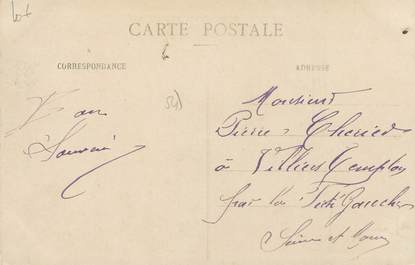 CARTE POSTALE
CORRESPONDANCE
ADRESSE
Bon
Souvenir
Monsieur
Pierre
à Villiers Templon
par la Ferté Gaucher
Seine et Marne